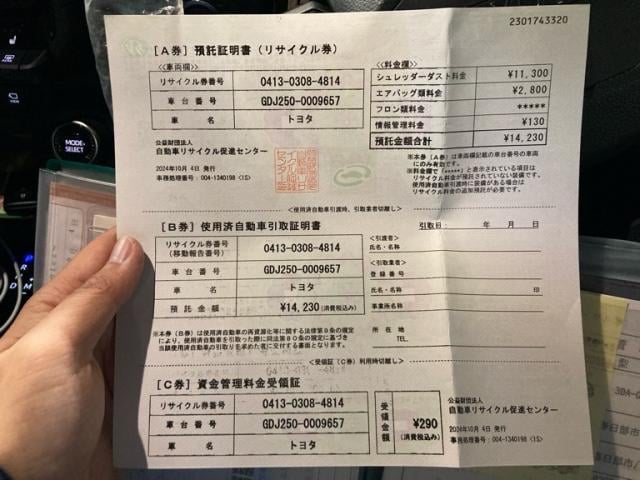 2301743320
[A券] 預託証明書(リサイクル券)
<車両欄>
リサイクル券番号 0413-0308-4814
車台番号 GDJ250-0009657
車名 トヨタ
<料金欄>
シュレッダーダスト料金 ¥11,300
エアバッグ類料金 ¥2,800
フロン類料金 *****
情報管理料金 ¥130
預託金額合計 ¥14,230
公益財団法人
自動車リサイクル促進センター
2024年10月 4日 発行
事務処理番号:004-1340198 (1S)
※本券(A券)は車両欄記載の車台番号の車両
にのみ有効です。
※料金欄で「*****」と表示されている項目は
リサイクル料金が預託されていない装備です。
使用済自動車引渡時に装備がある場合は
リサイクル料金の追加預託が必要です。
<使用済自動車引渡時、引取業者切離し>
[B券] 使用済自動車引取証明書
引取日: 年 月 日
リサイクル券番号
(移動報告番号) 0413-0308-4814
車台番号 GDJ250-0009657
車名 トヨタ
預託金額 ¥14,230 (消費税込み)
<引渡者>
氏名・名称
<引取業者>
登録番号
氏名・名称 印
事業所名
所在地
TEL.
※本券(B券)は使用済自動車の再資源化等に関する法律第9条の規定
により、使用済自動車を引取った際に同法第80条の規定に基づき
当該使用済自動車の引取りを求めた者に交付する書面となります。
<受領証(C券)利用時切離し>
[C券] 資金管理料金受領証
リサイクル券番号 0413-0308-4814
車台番号 GDJ250-0009657
車名 トヨタ
受領金額 ¥290
(消費税込み)
公益財団法人
自動車リサイクル促進センター
2024年10月 4日 発行
事務処理番号:004-1340198 (1S)
MODE
SELECT
R
D
M
30A-
春日部市